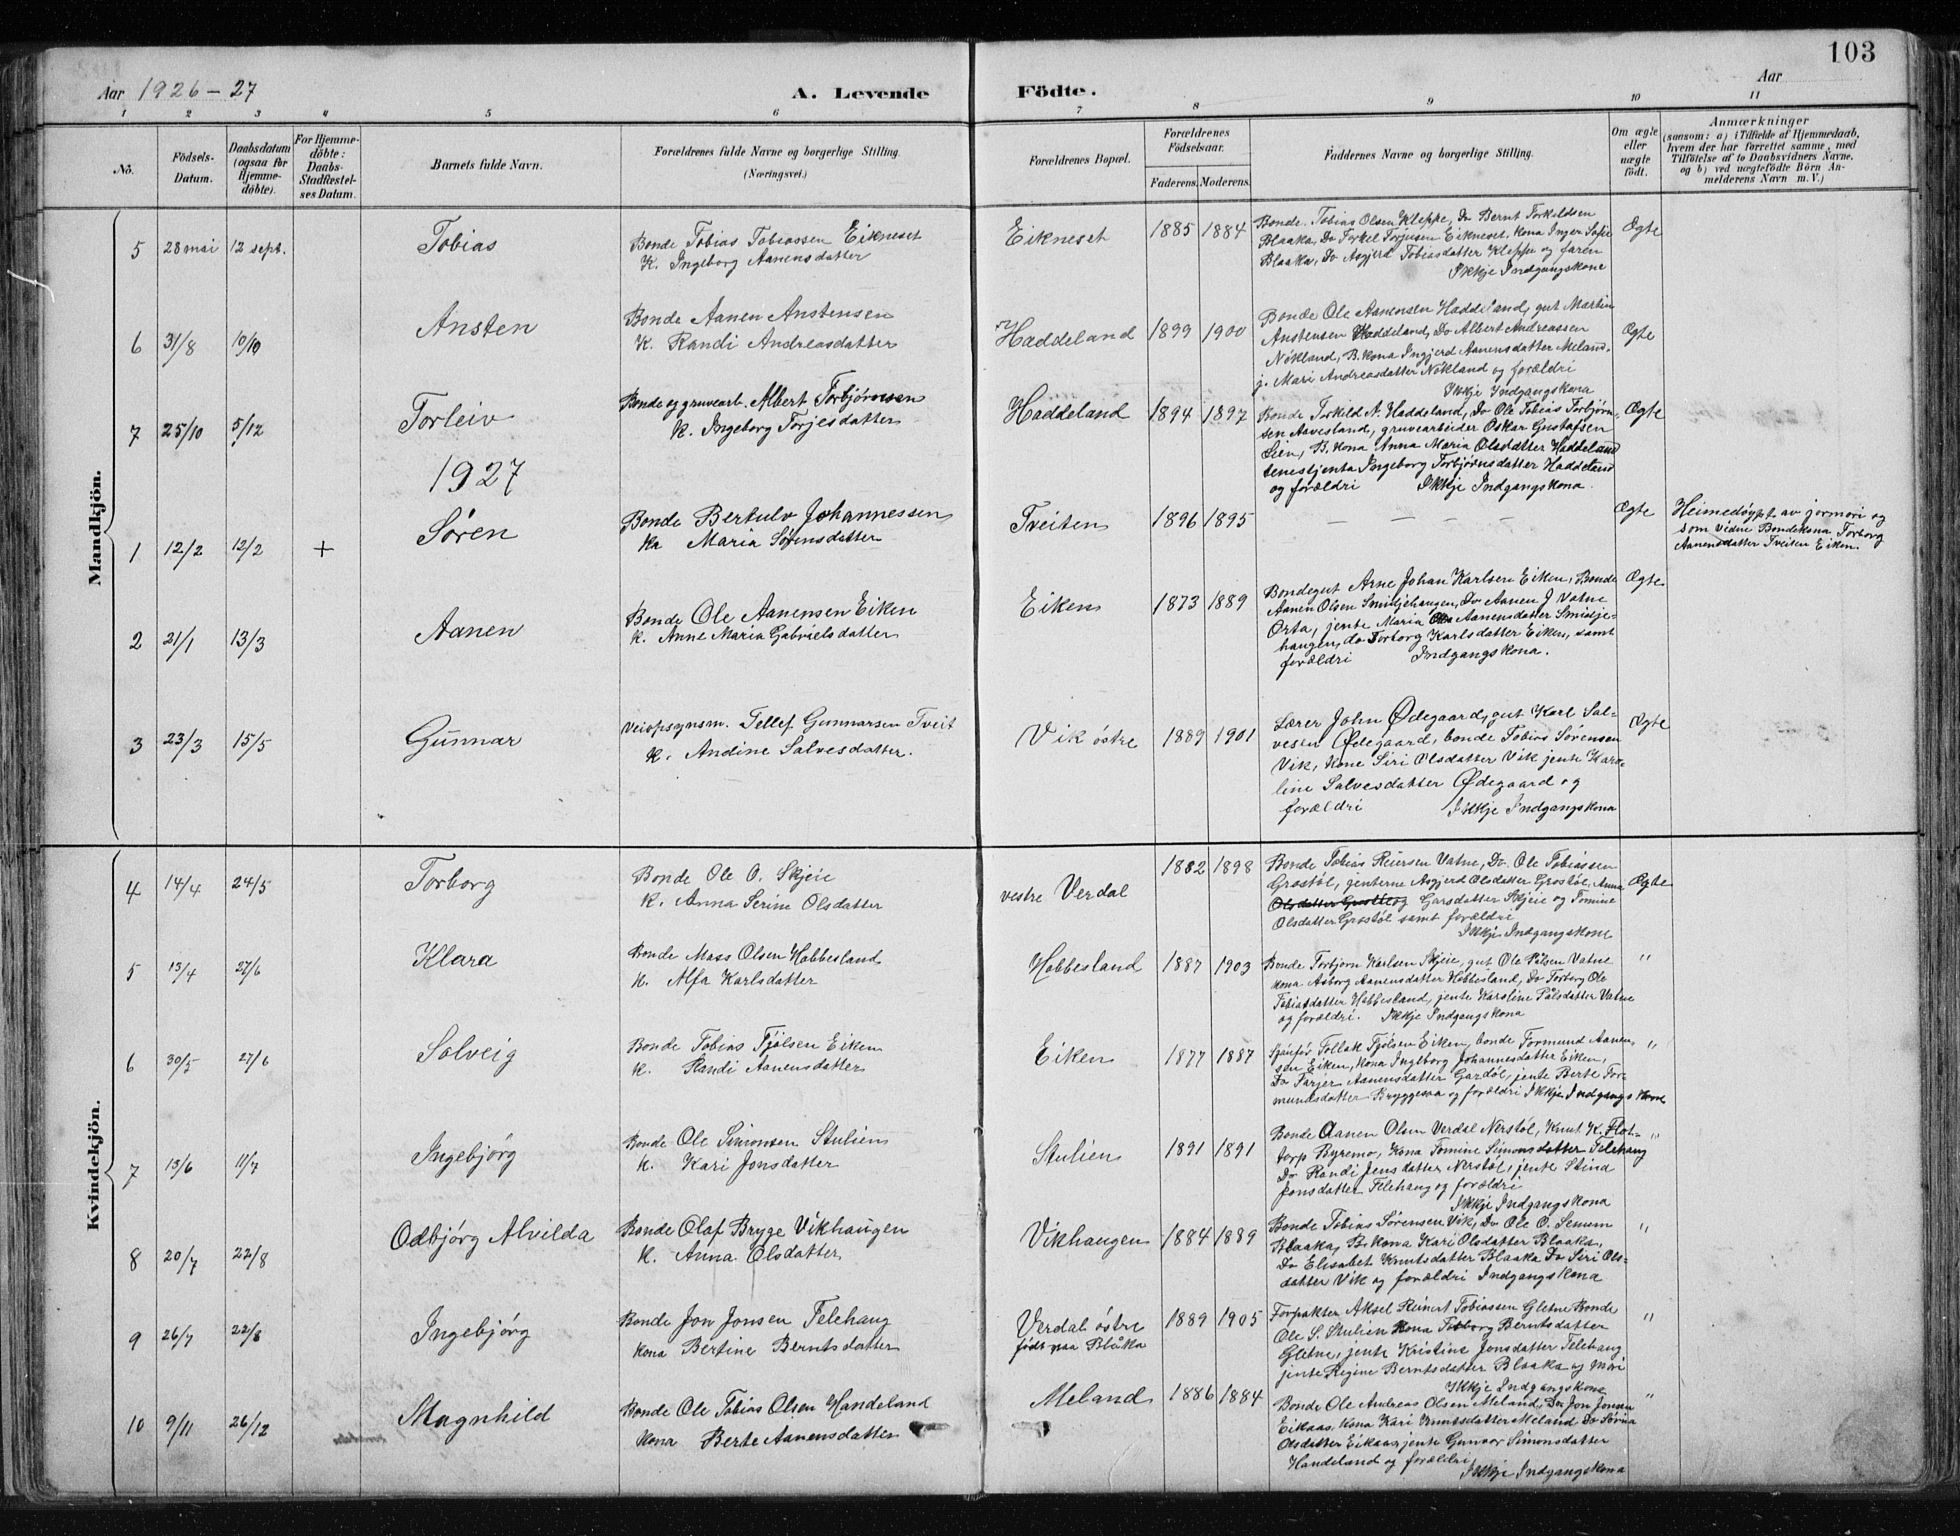 103
Aar 1926-27 A. Levende Födte. Aar
1 2 3 4 5 6 7 8 9 10 11
No.
Födsels-Datum.
Daabsdatum (ogsaa för Hjemme-döbte).
For Hjemme-döbte: Daabs-Stadfæstel-ses Datum.
Barnets fulde Navn.
Forældrenes fulde Navne og borgerlige Stilling.
(Næringsvei.)
Forældrenes Bopæl.
Forældrenes Födselsaar.
Faderens. Moderens.
Faddernes Navne og borgerlige Stilling.
Om ægte eller uægte födt.
Anmærkninger
(saasom: a) i Tilfælde af Hjemmedaab,
hvem der har forrettet samme, med
Tilföielse af to Daabsvidners Navne.
og b) ved uægtefödte Börn An-
melderens Navn m. V.)
Mandkjön.
5 28 mai 12 sept. Tobias
Bonde Tobias Tobiassen Eikneset
K. Ingeborg Aanensdatter
Eikneset 1885 1884
Bonde Tobias Olsen Kleppe, Do Bernt Torkildsen
Blaaka, Do Torkel Torjusen Eikneset, kona Inger Sofie
Blaaka, Do Asgjerd Tobiasdatter Kleppe og faren
Ikkje Indgangskone
Ægte
6 31/8 10/10 Ansten
Bonde Aanen Anstensen
K. Randi Andreasdatter
Haddeland 1899 1900
Bonde Ole Aanensen Haddeland, gut Martin
Anstensen Haddeland, Do Albert Andreassen
Nökland, B. kona Ingjerd Aanensdatter Meland,
j. Mari Andreasdatter Nökland og forældri
Ikkje Indgangskona
Ægte
7 25/10 5/12 Torleiv
Bonde og gruvearb. Albert Torbjørnsen
K. Ingeborg Torjesdatter
Haddeland 1894 1897
Bonde Torkild A. Haddeland, Do Ole Tobias Torbjørn-
sen Aavesland, gruvearbeider Oskar Gustafsen
Lien, B. kona Anna Maria Olsdatter Haddeland
tenestjenta Ingeborg Torbjørnsdatter Haddeland
og forældri Ikkje Indgangskona.
Ægte
1927
1 12/2 12/2 + Søren
Bonde Bertulv Johannessen
Ka Maria Sørensdatter
Tveiten 1896 1895
— — — — —
Ægte
Heimedøypt av jormori og
som vidne Bondekona Torborg
Aanensdatter Tveiten Eiken.
2 21/1 13/3 Aanen
Bonde Ole Aanensen Eiken
K. Anne Maria Gabrielsdatter
Eiken 1873 1889
Bondegut Arne Johan Karlsen Eiken, Bonde
Aanen Olsen Smidjehaugen, Do Aanen J Vatne
Orta, jente Maria Aanensdatter Smidje-
haugen, do Torborg Karlsdatter Eiken, samt
forældri Indgangskona.
Ægte
3 23/3 15/5 Gunnar
Veiopsynsm. Tellef Gunnarsen Tveit
K. Andine Salvesdatter.
Vik østre 1889 1901
Lærer John Ødegaard, gut Karl Sal-
vesen Ødegaard, bonde Tobias Sørensen
Vik, Kone Siri Olsdatter Vik jente Karo-
line Salvesdatter Ødegaard og
forældri Ikkje Indgangskona
Ægte
Kvindekjön.
4 14/4 24/5 Torborg
Bonde Ole O. Skjeie
K. Anna Serine Olsdatter
vestre Verdal 1882 1898
Bonde Tobias Reiersen Vatne, Do Ole Tobiassen
Grostöl, jenterne Asgjerd Olsdatter Grostöl, Anna
Olsdatter Garsdatter Skjeie og Tomine
Olsdatter Grostöl samt forældri
Ikkje Indgangskone
Ægte
5 13/4 27/6 Klara
Bonde Mass Olsen Habbesland
K. Alfa Karlsdatter
Habbesland 1887 1903
Bonde Torbjørn Karlsen Skjeie, gut Ole Pålsen Vatne
kona Asborg Aanensdatter Habbesland, Do Torborg Ole
Tobiasdatter Habbesland, jente Karoline Pålsdatter Vatne
og forældri. Ikkje Indgangskona
"
6 30/5 27/6 Solveig
Bonde Tobias Fjølsen Eiken
K. Randi Aanensdatter
Eiken 1877 1887
Sjåfør Tollak Fjølsen Eiken, bonde Tormund Aanen-
sen Eiken, Kona Ingeborg Johannesdatter Eiken,
Do Tarjer Aanensdatter Gardöl, jente Berte Tor-
mundsdatter Bryggesaa og forældri Ikkje Indgangskone
"
7 13/6 11/7 Ingebjørg
Bonde Ole Simonsen Stulien
K. Kari Jonsdatter
Stulien 1891 1891
Bonde Aanen Olsen Verdal Nerstöl, Knut K. Flot-
torp Byremo, Kona Tomine Simonsdatter Telehaug
Do Randi Jensdatter Nerstöl, jente Stina
Jonsdatter Telehaug og forældri
Ikkje Indgangskona
"
8 20/7 22/8 Odbjörg Alvilda
Bonde Olaf Bryge Vikhaugen
K. Anna Olsdatter
Vikhaugen 1884 1889
Bonde Tobias Sørensen Vik, Do Ole O. Senum
Blaaka, B. kona Kari Olsdatter Blaaka,
Do Elisabet Knutsdatter Blaaka Do Siri Ols-
datter Vik og forældri Indgangskona
"
9 26/7 22/8 Ingebjörg
Bonde Jon Jonsen Telehaug
Kona Bertine Berntsdatter
Verdal östre
født paa Blåka 1889 1905
Forpakter Aksel Reinert Tobiassen Gletne Bonde
Ole S. Stulien Kona Torborg Berntsdatter
Gletne, jente Kristine Jonsdatter Telehaug
jente Regine Berntsdatter Blaaka og Mori
Ikkje Indgangskone
"
10 9/11 26/12 Magnhild
Bonde Ole Tobias Olsen Handeland
Kona Berte Aanensdatter
Meland 1886 1884
Bonde Ole Andreas Olsen Meland, Do Jon Jonsen
Eikaas, Kona Kari Knutsdatter Meland Do Sørina
Olsdatter Eikaas, jente Gunvor Simonsdatter
Handeland og forældri
Ikkje Indgangskona
"